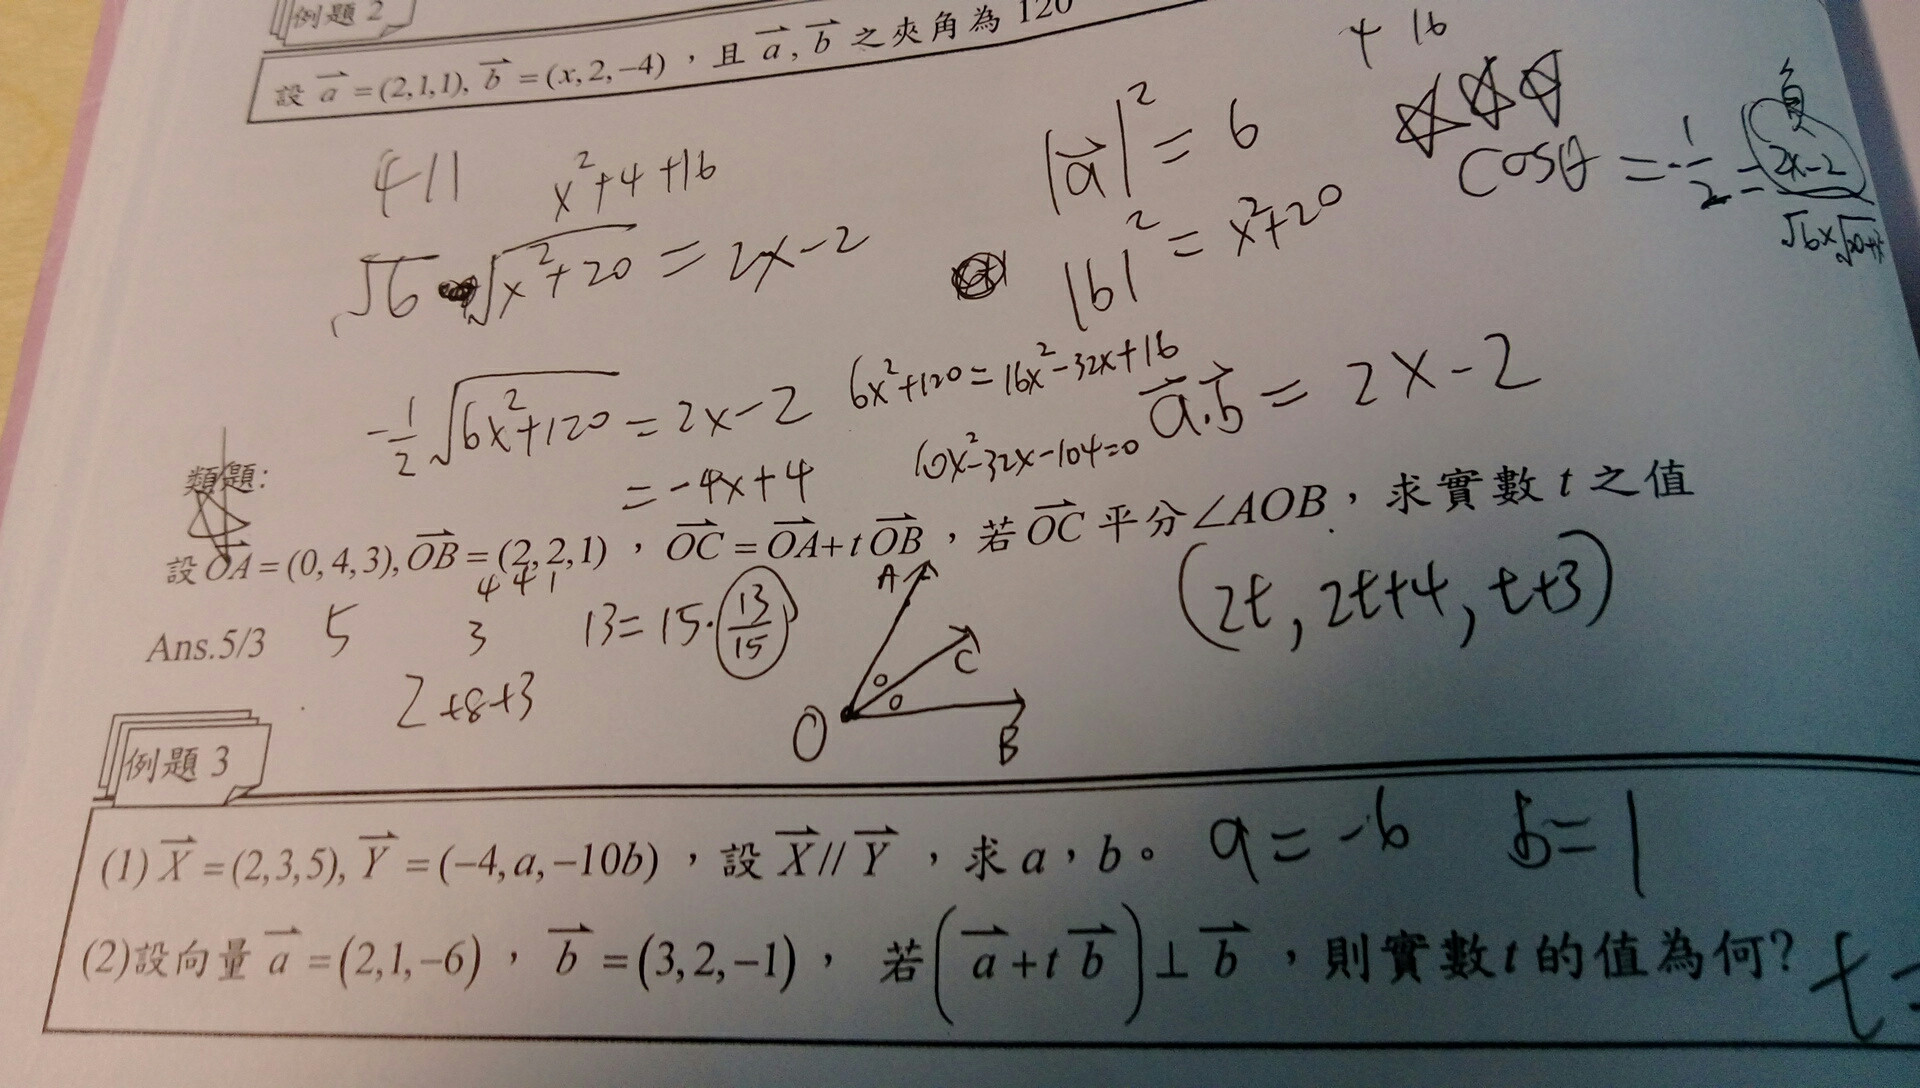 例題 2
設 a = (2,1,1), b = (x, 2, −4)，且 a, b 之夾角為 120
4 16
411
x²+4+16
√6 √x²+20 = 2x−2
|a|² = 6
|b|² = x²+20
負
cosθ = -1/2 = 2x-2/√6×√20+x²
-1/2 √6x²+120 = 2x−2
= −4x+4
6x²+120 = 16x²−32x+16
10x²−32x−104=0
a·b = 2x−2
類題:
設 OA = (0, 4, 3), OB = (2, 2, 1)，OC = OA + t OB，若 OC 平分∠AOB，求實數 t 之值
4 4 1
Ans.5/3
5
3
13 = 15·13/15
2+8+3
A
C
O
B
(2t, 2t+4, t+3)
例題 3
(1) X = (2,3,5), Y = (−4, a, −10b)，設 X // Y，求 a，b。 a = -6 b = 1
(2)設向量 a = (2,1,−6)，b = (3,2,−1)，若(a + t b) ⊥ b，則實數 t 的值為何? t=